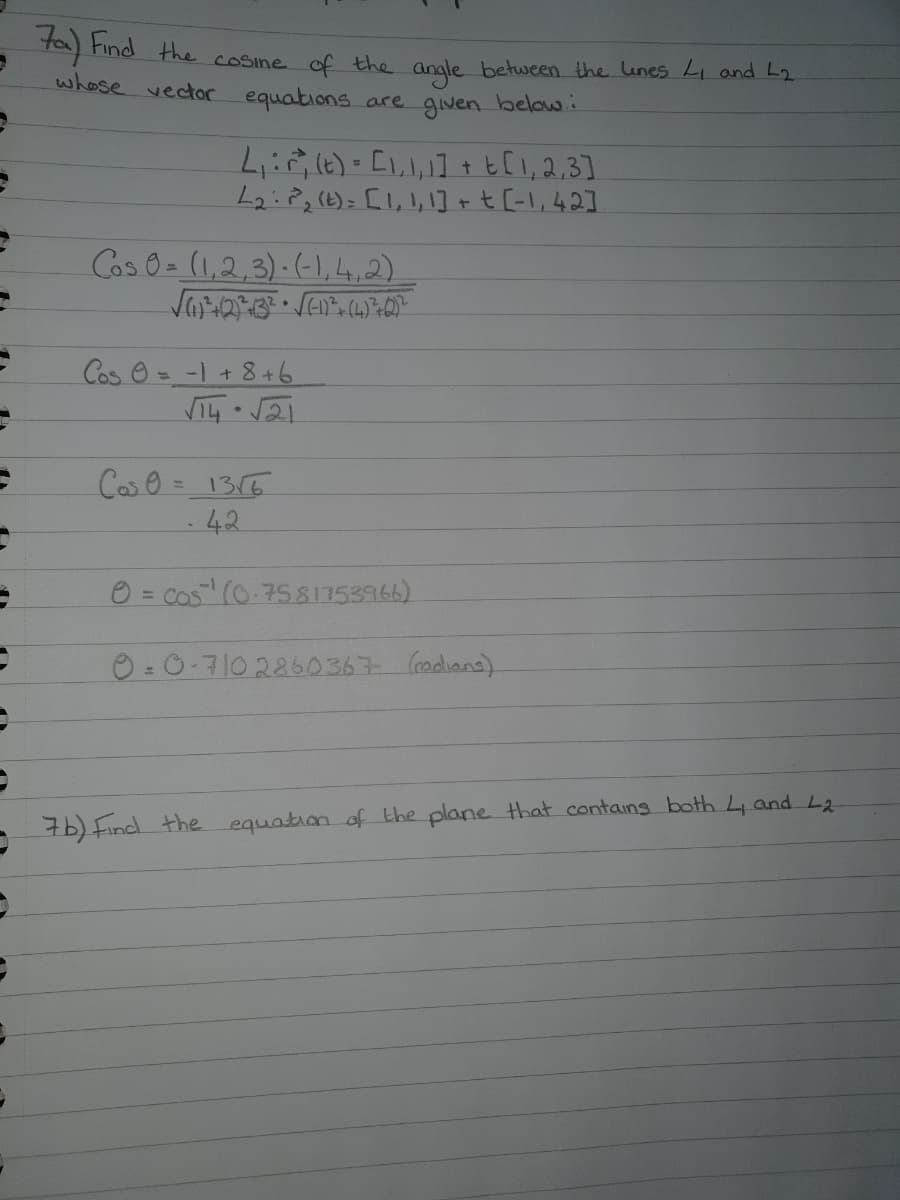 7a) Find the cosine of the angle between the lines L₁ and L₂
whose vector equations are given below:
L₁: r⃗₁(t) = [1,1,1] + t[1,2,3]
L₂: r⃗₂(t) = [1,1,1] + t[-1,42]
Cos θ = (1,2,3)·(-1,4,2)
√(1)²+(2)²+(3)² · √(-1)²+(4)²+(2)²
Cos θ = -1 + 8 + 6
√14 · √21
Cos θ = 13√6
42
θ = cos⁻¹(0.7581753966)
θ = 0.7102860367 (radians)
7b) Find the equation of the plane that contains both L₁ and L₂